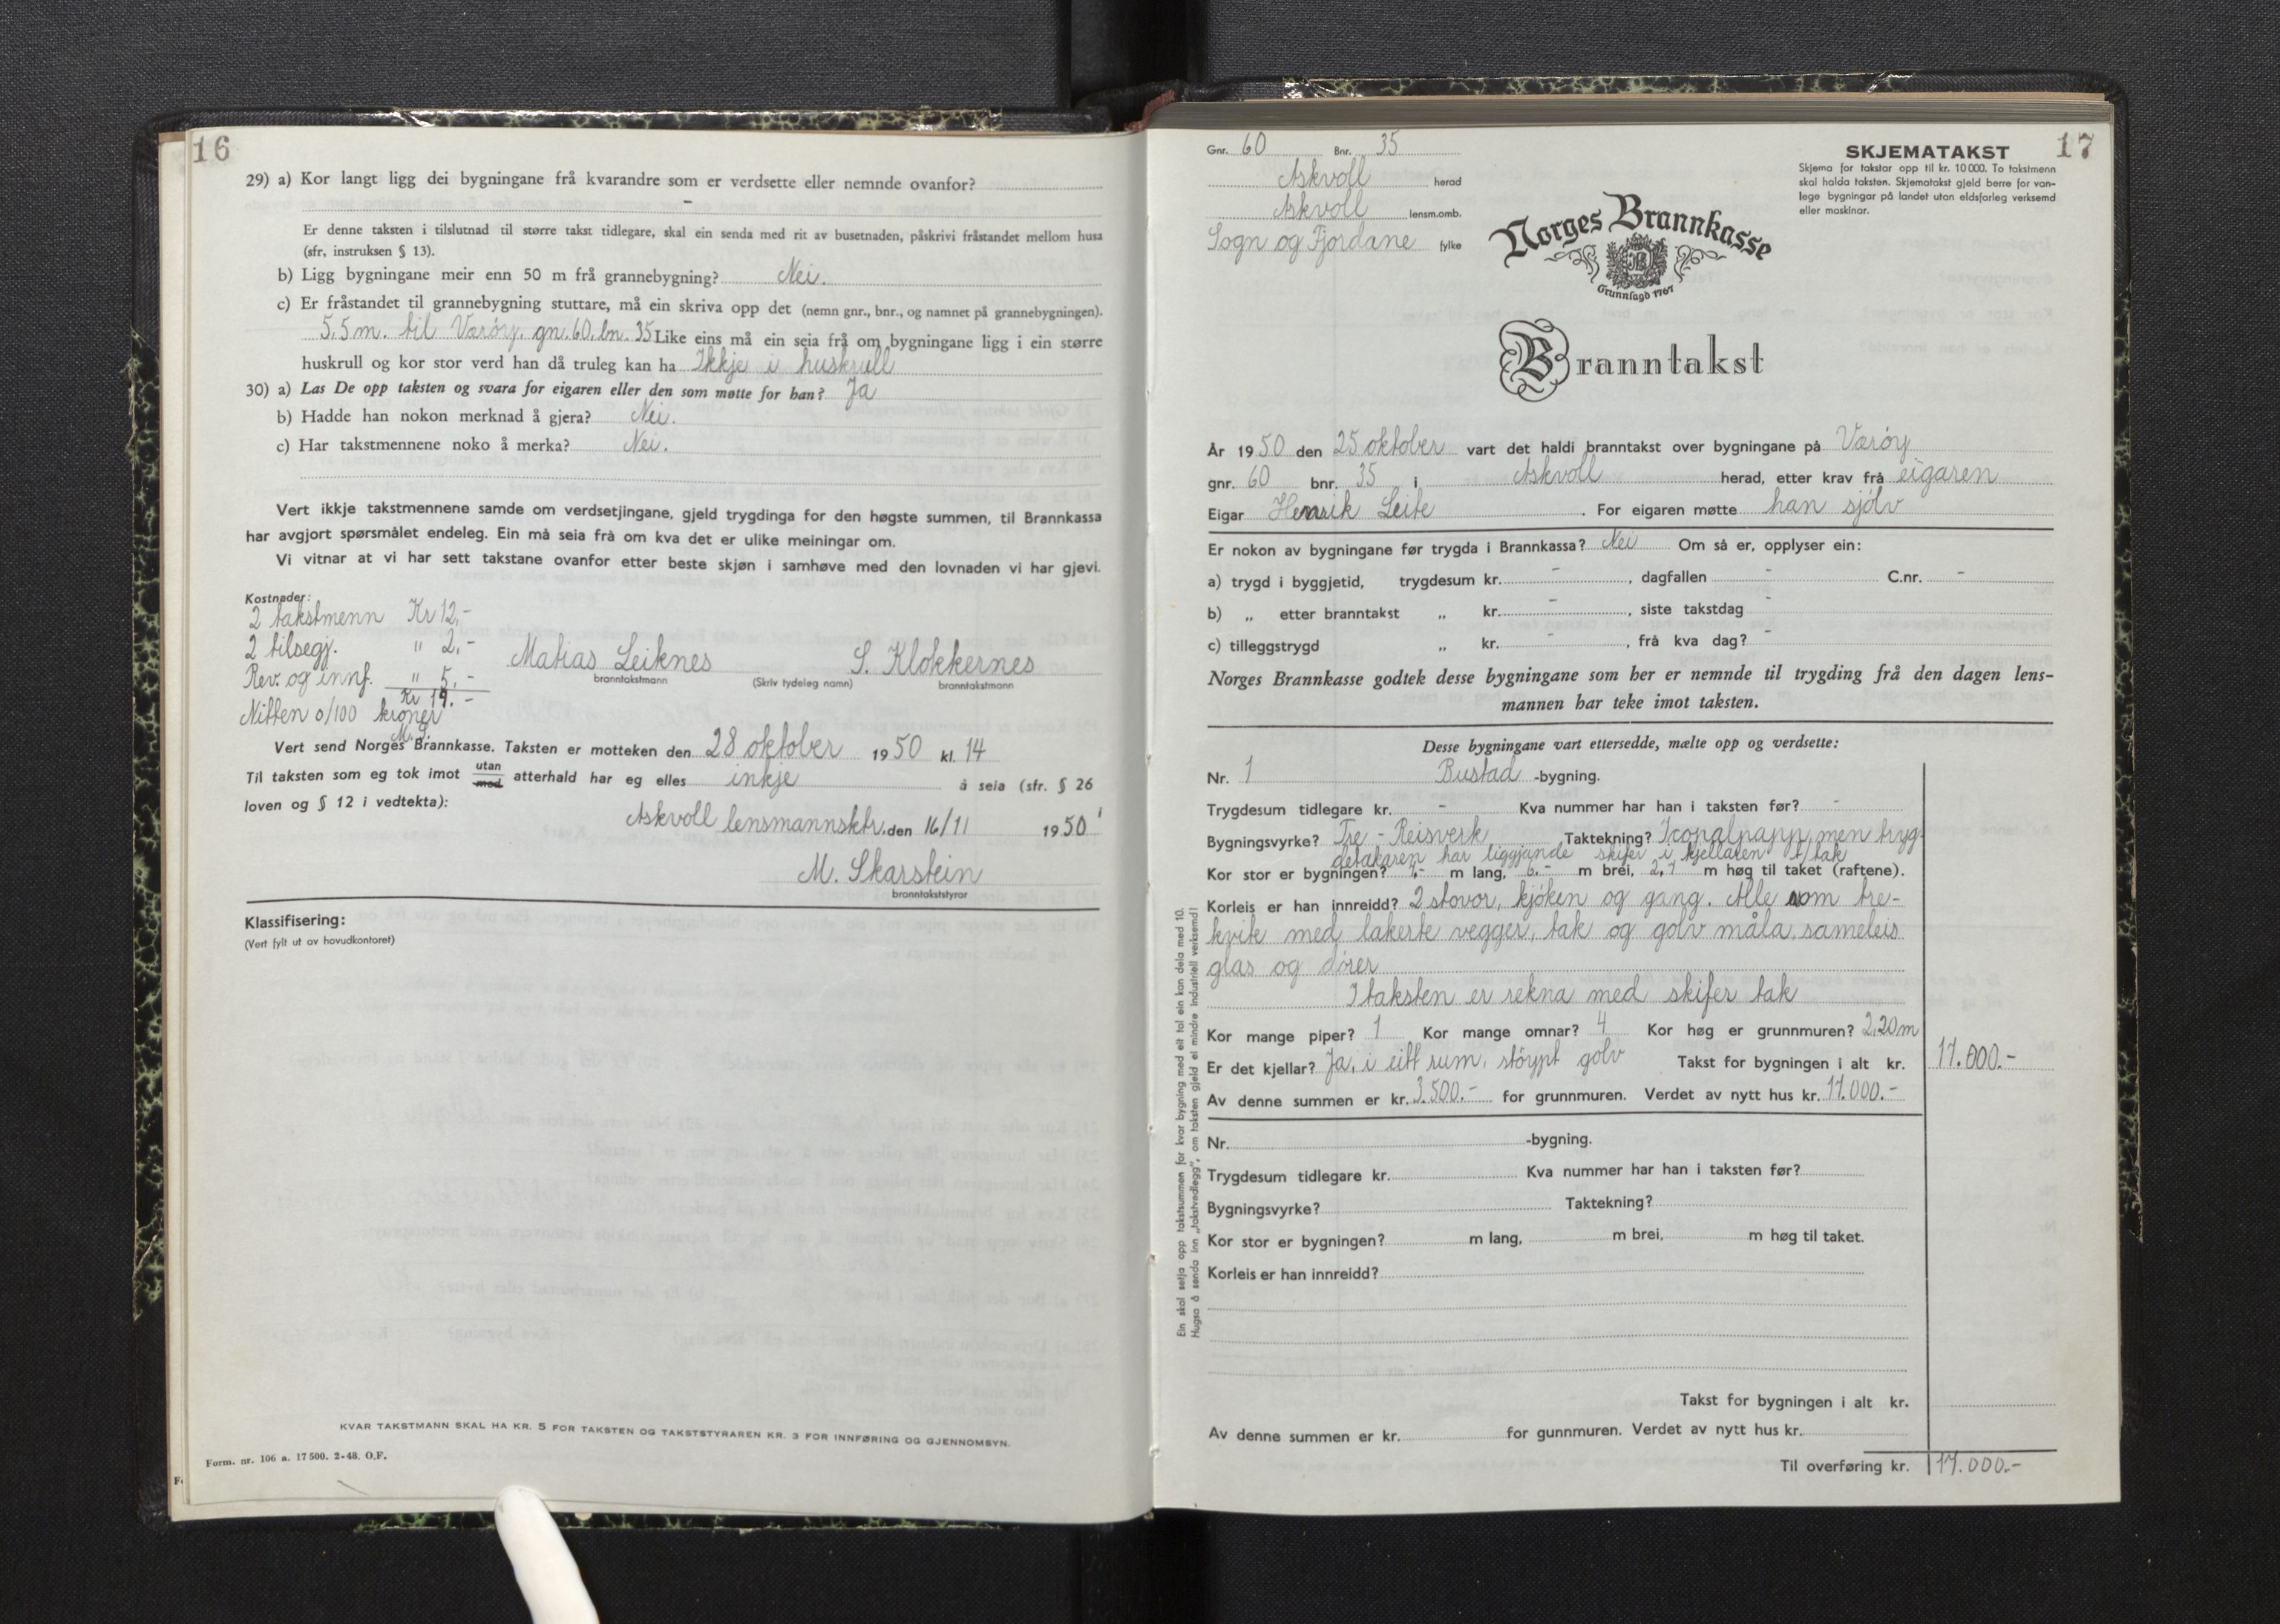 16
29) a) Kor langt ligg dei bygningane frå kvarandre som er verdsette eller nemnde ovanfor?
-
Er denne taksten i tilslutnad til større takst tidlegare, skal ein senda med rit av busetnaden, påskrivi fråstandet mellom husa
(sfr, instruksen § 13).
b) Ligg bygningane meir enn 50 m frå grannebygning? Nei.
c) Er fråstandet til grannebygning stuttare, må ein skriva opp det (nemn gnr., bnr., og namnet på grannebygningen).
5,5 m. til Værøy. gn. 60, bn. 35 Like eins må ein seia frå om bygningane ligg i ein større
huskrull og kor stor verd han då truleg kan ha Ikkje i huskrull
30) a) Las De opp taksten og svara for eigaren eller den som møtte for han? Ja
b) Hadde han nokon merknad å gjera? Nei.
c) Har takstmennene noko å merka? Nei.
Vert ikkje takstmennene samde om verdsetjingane, gjeld trygdinga for den høgste summen, til Brannkassa
har avgjort spørsmålet endeleg. Ein må seia frå om kva det er ulike meiningar om.
Vi vitnar at vi har sett takstane ovanfor etter beste skjøn i samhøve med den lovnaden vi har gjevi.
Kostnader:
2 takstmenn Kr 12,-
2 tilsegj. " 2,-
Rev. og innf. " 5,-
Kr 19.-
Nitten 0/100 kroner
M. S.
Matias Leiknes S. Klokkernes
branntakstmann (Skriv tydeleg namn) branntakstmann
Vert send Norges Brannkasse. Taksten er motteken den 28 oktober 1950 kl. 14
Til taksten som eg tok imot utan med atterhald har eg elles inkje å seia (sfr. § 26
loven og § 12 i vedtekta):
Askvoll lensmannsktr. den 16/11 1950
M. Skarstein
branntakststyrar
Klassifisering:
(Vert fylt ut av hovudkontoret)
KVAR TAKSTMANN SKAL HA KR. 5 FOR TAKSTEN OG TAKSTSTYRAREN KR. 3 FOR INNFØRING OG GJENNOMSYN.
Form. nr. 106 a. 17 500. 2-48. O.F.
17
Gnr. 60 Bnr. 35
Askvoll herad
Askvoll lensm.omb.
Sogn og Fjordane fylke
SKJEMATAKST
Skjema for takstar opp til kr. 10 000. To takstmenn
skal halda taksten. Skjematakst gjeld berre for van-
lege bygningar på landet utan eldsfarleg verksemd
eller maskinar.
Norges Brannkasse
Grunnlagd 1767
Branntakst
År 1950 den 25 oktober vart det haldi branntakst over bygningane på Værøy
gnr. 60 bnr. 35 i Askvoll herad, etter krav frå eigaren
Eigar Henrik Leite . For eigaren møtte han sjölv
Er nokon av bygningane før trygda i Brannkassa? Nei Om så er, opplyser ein:
a) trygd i byggjetid, trygdesum kr. - , dagfallen - C.nr. -
b) „ etter branntakst „ kr. - , siste takstdag -
c) tilleggstrygd „ kr. - , frå kva dag? -
Norges Brannkasse godtek desse bygningane som her er nemnde til trygding frå den dagen lens-
mannen har teke imot taksten.
Desse bygningane vart ettersedde, mælte opp og verdsette:
Nr. 1 Bustad -bygning.
Trygdesum tidlegare kr. - Kva nummer har han i taksten før? -
Bygningsvyrke? Tre - Reisverk Taktekning? Icopalpapp, men tryg-
detakaren har liggjande skifer i kjellaren t/tak
Kor stor er bygningen? 7,- m lang, 6.- m brei, 2,7 m høg til taket (raftene).
Korleis er han innreidd? 2 stovor, kjöken og gang. Alle rom tre-
kvite med lakerte vegger, tak og golv måla, sameleis
glas og dörer
I taksten er rekna med skifer tak
Kor mange piper? 1 Kor mange omnar? 4 Kor høg er grunnmuren? 2,20 m
Er det kjellar? Ja, i eitt rum, stöypt golv Takst for bygningen i alt kr. 17.000.-
Av denne summen er kr. 3.500.- for grunnmuren. Verdet av nytt hus kr. 17.000.-
Nr. -bygning.
Trygdesum tidlegare kr. Kva nummer har han i taksten før?
Bygningsvyrke? Taktekning?
Kor stor er bygningen? m lang, m brei, m høg til taket.
Korleis er han innreidd?
Takst for bygningen i alt kr.
Av denne summen er kr. for gunnmuren. Verdet av nytt hus kr.
Til overføring kr. 17.000.-
Ein skal setja opp takstsummen for kvar bygning med eit tal ein kan dela med 10.
Hugsa å senda inn „takstvedlegg", om taksten gjeld ei mindre industriell verksemd!